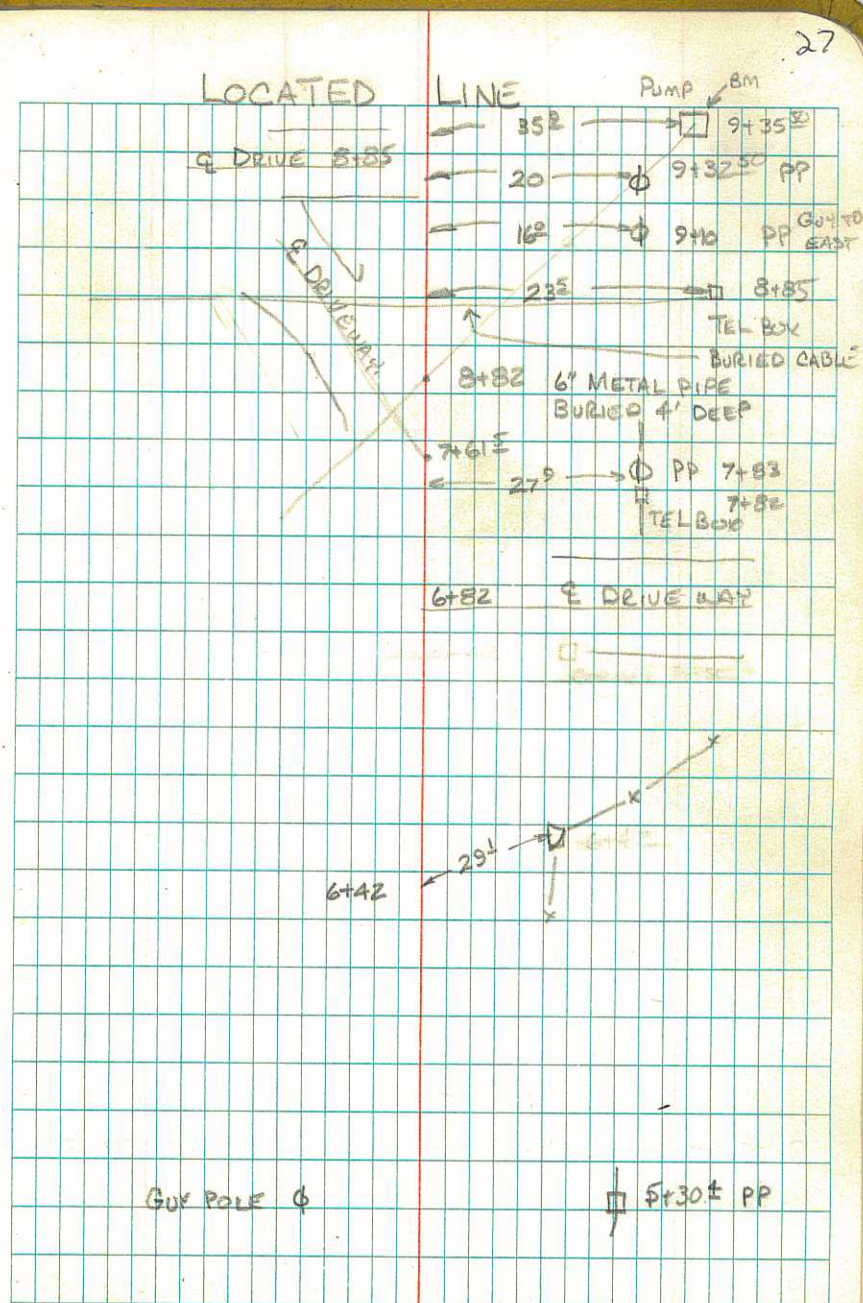 27
LOCATED LINE
PUMP BM
35⁹ 9+35⁵⁰
℄ DRIVE 8+85
20 9+32⁵⁰ PP
16⁰ 9+10 PP GUY TO EAST
℄ DRIVEWAY
23⁵ 8+85
TEL BOX
BURIED CABLE
8+82 6" METAL PIPE
BURIED 4' DEEP
7+61⁵
27⁹ PP 7+83
7+82
TEL BOX
6+82 ℄ DRIVE WAY
29¹
6+42
6+42
GUY POLE 5+30.4 PP